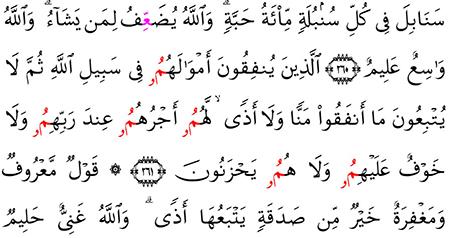 سَنَابِلَ فِى كُلِّ سُنۢبُلَةٍ مِّاْئَةُ حَبَّةٍ ۗ وَاللَّهُ يُضَعِّفُ لِمَن يَشَآءُ ۗ وَاللَّهُ
وَٰسِعٌ عَلِيمٌ ٢٦٠ الَّذِينَ يُنفِقُونَ أَمْوَٰلَهُمُۥ فِى سَبِيلِ اللَّهِ ثُمَّ لَا
يُتْبِعُونَ مَا أَنفَقُواْ مَنًّا وَلَا أَذًى ۙ لَّهُمُۥ أَجْرُهُمُۥ عِندَ رَبِّهِمُۥ وَلَا
خَوْفٌ عَلَيْهِمُۥ وَلَا هُمُۥ يَحْزَنُونَ ٢٦١ ۞ قَوْلٌ مَّعْرُوفٌ
وَمَغْفِرَةٌ خَيْرٌ مِّن صَدَقَةٍ يَتْبَعُهَا أَذًى ۗ وَاللَّهُ غَنِىٌّ حَلِيمٌ